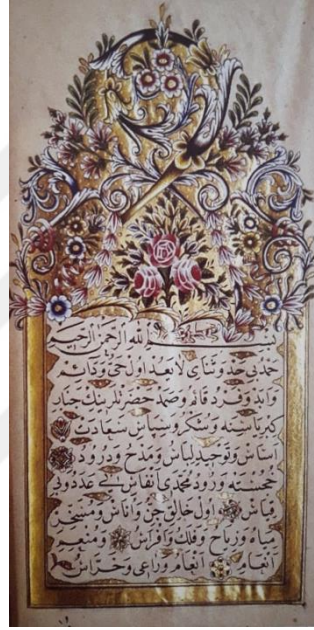 بسم الله الرحمن الرحيم
حمد بى حد وثناى لا بعد اول حى ودائم
وابد وفرد قائم وصمد حضرتلرينك جناب
كبرياسنه وشكر وسپاس سعادت
اساس وتوحيد لباس ومدح ودرود
خجسته ورود محمدى انفاس بى عدد وبى
قياس اول خالق جن واناس ومسخر
مياه ورياح وفلك وافراس ومنعم
انعام انعام وراعى وحراس